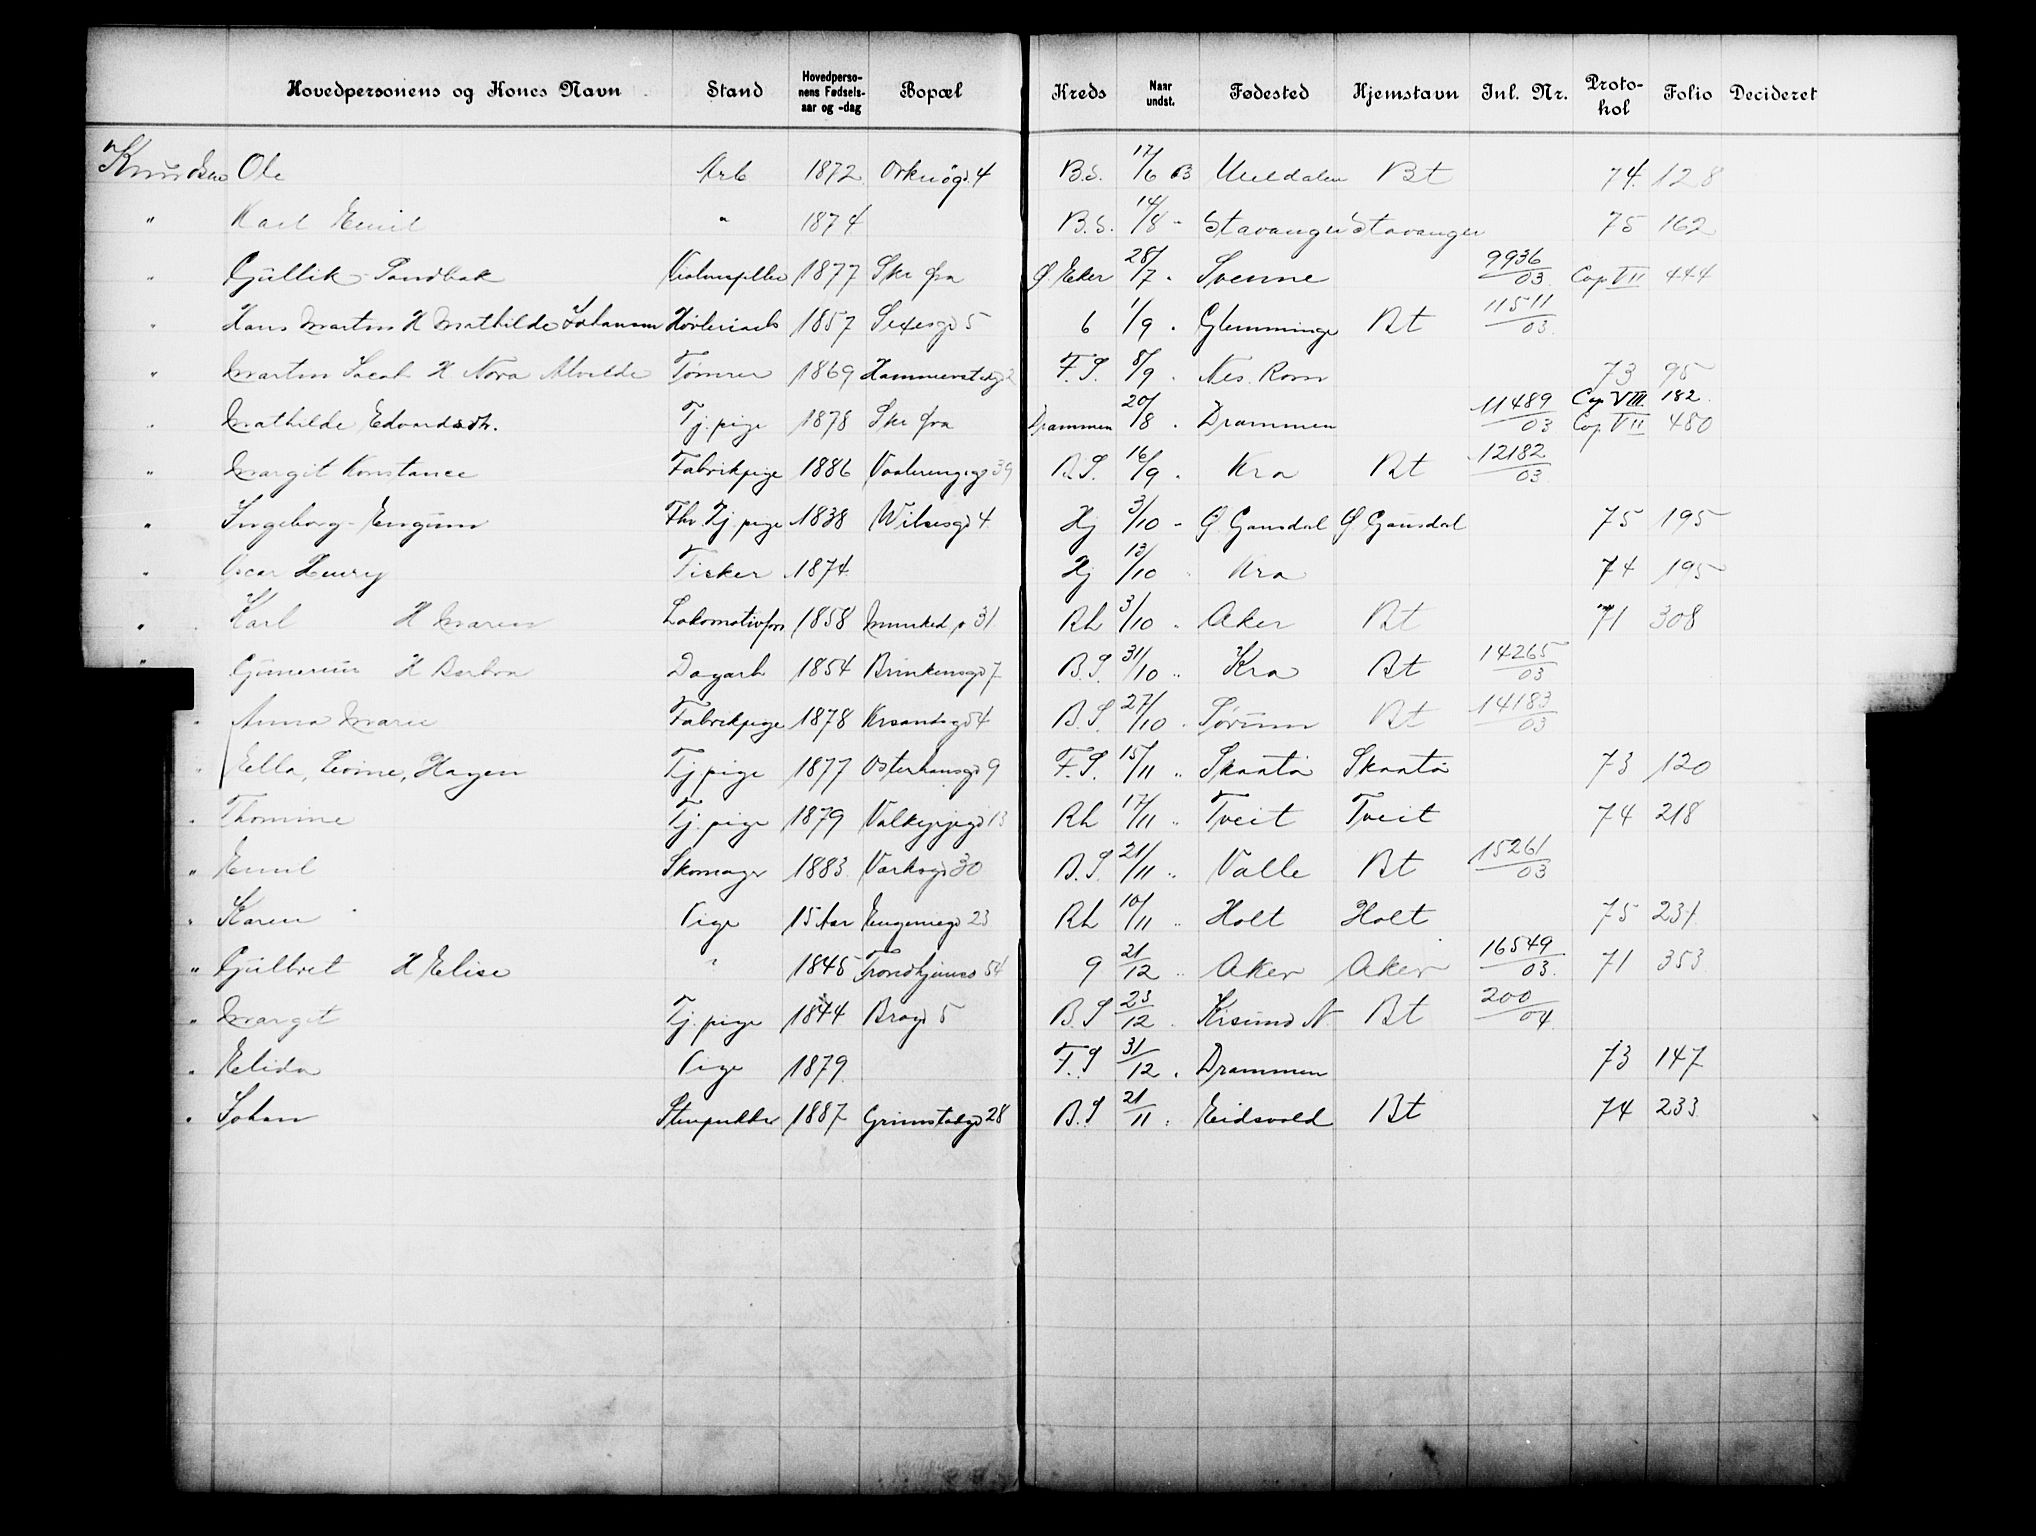 Hovedpersonens og Kones Navn Stand Hovedperso-nens Fødsels-aar og -dag Bopæl Kreds Naar undst. Fødested Hjemstavn Inl. Nr. Proto-kol Folio Decideret
Knudsen Ole Arb 1872 Orknögd 4 B.S. 17/6 03 Bt 74. 128
" Karl Emil " 1874 B.S. 14/8 " Stavanger Stavanger 75 162
" Gullik Sandbak 1877 Skr fra Ø Eker 28/7 " Svenne 9936/03 Cop VII 444
" Hans Martin H Mathilde Johansen 1857 Sexesgd 5 6 1/9 " Glemminge Bt 11511/03
" Martin Jacob H Nora Alvilde Tømrer 1869 Hammerstadgd 2 F.S. 8/9 " Nes. Rom 73 95
" Mathilde Edvardsdtr. Tj. pige 1878 Skr fra Drammen 20/8 " Drammen 11489/03 Cop VIII 182. Cop VII 480
" Margit Konstance Fabrikpige 1886 Vaalerenggd 39 B.S. 16/9 " Kra Bt 12182/03
" Ingeborg Engum Fhv. Tj. pige 1838 Wilsesgd 4 Hj 3/10 " Ø. Gausdal Ø. Gausdal 75 195
" Oscar Henry Fisker 1874 Hj 13/10 " Kra 74 195
" Karl H Maren Lokomotivfyrb 1858 Munked v 31 Rh 3/10 " Aker Bt 71 308
" Gunerius H Barbra Dagarb 1854 Brinkensgd 7 B.S. 31/10 " Kra Bt 14265/03
" Anna Marie Fabrikpige 1878 Krsandsgd 4 B.S. 27/10 " Sørum Bt 14183/03
" Ella, Levine, Hagen Tj pige 1877 Osterhausgd 9 F.S. 15/11 " Skaatø Skaatø 73 120
" Thomine Tj. pige 1879 Valkyrjegd 13 Rh 17/11 " Tveit Tveit 74 218
" Emil Skomager 1883 Verksgd 30 B.S. 21/11 " Valle Bt 15261/03
" Karen Pige 15 Aar Eugeniegd 23 Rh 10/11 " Holt Holt 75 231
" Gulbret H Elise " 1845 Trondhjemsv 54 9 21/12 " Aker Aker 16549/03 71 353
" Margit Tj. pige 1844 Brogd 5 B.S 23/12 " Krsund N Bt 200/04
" Elida Pige 1879 F.S 31/12 " Drammen 73 147
" Johan Stenpukker 1887 Grimstadgd 28 B.S 21/11 " Eidsvold Bt 74 233